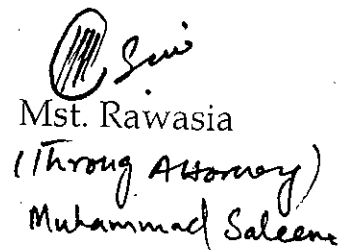 Mst. Rawasia
(Throug Attorney)
Muhammad Saleem